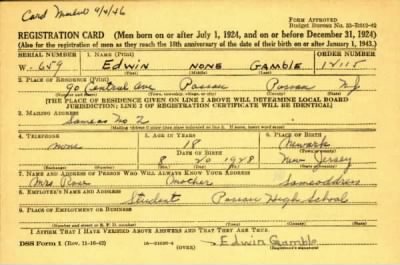 Card Mailed 4/4/46
FORM APPROVED
Budget Bureau No. 33-R102-42
REGISTRATION CARD (Men born on or after July 1, 1924, and on or before December 31, 1924)
(Also for the registration of men as they reach the 18th anniversary of the date of their birth on or after January 1, 1943.)
SERIAL NUMBER 1. NAME (Print) ORDER NUMBER
W- 659 EDWIN NONE GAMBLE
(First) (Middle) (Last)
2. PLACE OF RESIDENCE (Print)
90 Central Ave Passaic Passaic N.J.
(Number and street) (Town, township, village, or city) (County) (State)
[THE PLACE OF RESIDENCE GIVEN ON LINE 2 ABOVE WILL DETERMINE LOCAL BOARD
JURISDICTION; LINE 2 OF REGISTRATION CERTIFICATE WILL BE IDENTICAL]
3. MAILING ADDRESS
Same as No 2
4. TELEPHONE 5. AGE IN YEARS 6. PLACE OF BIRTH
none 18 Newark
DATE OF BIRTH
8 20 1928 New Jersey
(Exchange) (Number) (Mo.) (Day) (Yr.) (State or country)
7. NAME AND ADDRESS OF PERSON WHO WILL ALWAYS KNOW YOUR ADDRESS
Mrs. Rose mother Same address
8. EMPLOYER'S NAME AND ADDRESS
Student Passaic High School
9. PLACE OF EMPLOYMENT OR BUSINESS
(Number and street or R. F. D. number) (Town) (County) (State)
I AFFIRM THAT I HAVE VERIFIED ABOVE ANSWERS AND THAT THEY ARE TRUE.
DSS Form 1 (Rev. 11-16-42) (OVER) Edwin Gamble
(Registrant's signature)